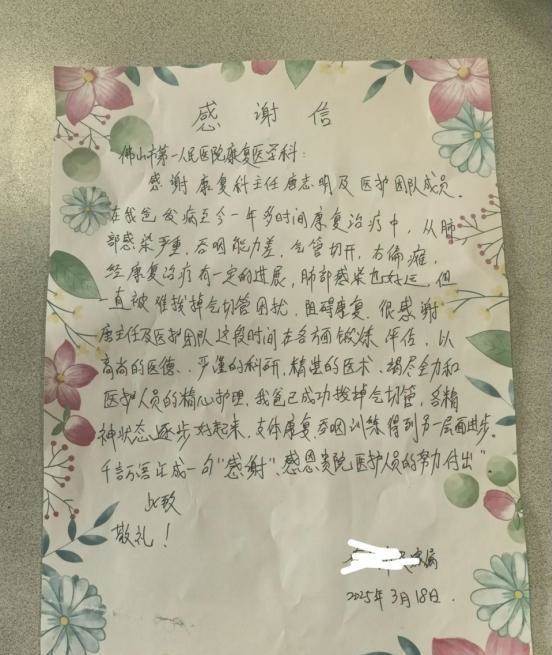 感谢信
佛山市第一人民医院康复医学科：
感谢康复科主任唐志明及医护团队成员。
在我爸发病至今一年多时间康复治疗中，从肺
部感染严重，吞咽能力差，气管切开，右偏瘫，
经康复治疗有一定的进展，肺部感染也好转，但
一直被难拔掉气切管困扰，阻碍康复。很感谢
唐主任及医护团队这段时间在各方面锻炼评估，以
高尚的医德、严谨的科研，精湛的医术，竭尽全力和
医护人员的精心护理，我爸已成功拔掉气切管，各精
神状态逐步好起来，支体康复，吞咽训练得到另一层面进步。
千言万语汇成一句"感谢"、感恩贵院医护人员的努力付出"
此致
敬礼！
2025年3月18日.